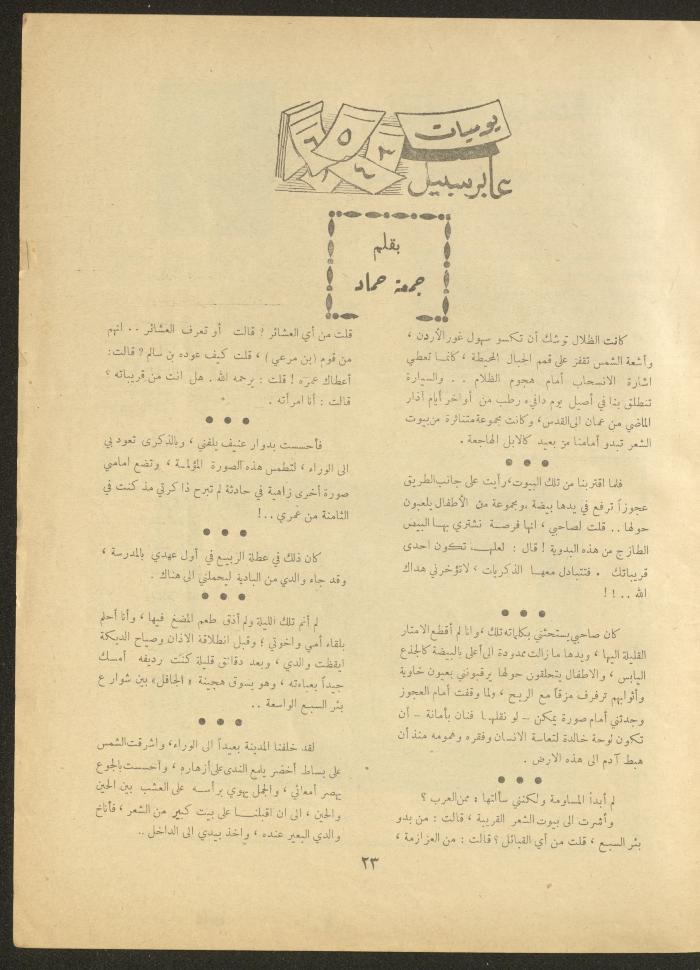 يوميات
عابر سبيل
٦ ٥ ٣
١ ٤
بقلم
جمعة حماد
كانت الظلال توشك أن تكسو سهول غور الأردن ،
وأشعة الشمس تقفز على قمم الجبال المحيطة ، كأنما تعطي
اشارة الانسحاب أمام هجوم الظلام . . والسيارة
تنطلق بنا في أصيل يوم دافىء رطب من أواخر أيام آذار
الماضي من عمان الى القدس، وكانت مجموعة متناثرة من بيوت
الشعر تبدو أمامنا من بعيد كالابل الهاجعة .
● ● ●
فلما اقتربنا من تلك البيوت، رأيت على جانب الطريق
عجوزاً ترفع في يدها بيضة ، ومجموعة من الأطفال يلعبون
حولها .. قلت لصاحبي ، انها فرصة نشتري بها البيض
الطازج من هذه البدوية ! قال : لعلها تكون احدى
قريباتك . فتتبادل معها الذكريات ، لا تؤخرني هداك
الله .. ! !
● ● ●
كان صاحبي يستحثني بكلماته تلك ، وانا لم أقطع الامتار
القليلة اليها ، ويدها ما زالت ممدودة الى أعلى بالبيضة كالجذع
اليابس ، والاطفال يتحلقون حولها يرقبونني بعيون خاوية
وأثوابهم ترفرف مزقاً مع الريح ، ولما وقفت أمام العجوز
وجدتني أمام صورة يمكن – لو نقلها فنان بأمانة – أن
تكون لوحة خالدة لتعاسة الانسان وفقره وهمومه منذ أن
هبط آدم الى هذه الارض .
● ● ●
لم أبدأ المساومة ولكنني سألتها : ممن العرب ؟
وأشرت الى بيوت الشعر القريبة ، قالت : من بدو
بئر السبع ، قلت من أي القبائل ؟ قالت : من العزازمة ،
قلت من أي العشائر ؟ قالت أو تعرف العشائر . . انهم
من قوم (بن مرعي) ، قلت كيف عوده بن سالم ؟ قالت:
أعطاك عمره ! قلت : يرحمه الله . هل انت من قريباته ؟
قالت : أنا امرأته .
● ● ●
فأحسست بدوار عنيف يلفني ، وبالذكرى تعود بي
الى الوراء ، لتطمس هذه الصورة المؤلمة ، وتضع امامي
صورة أخرى زاهية في حادثة لم تبرح ذاكرتي مذ كنت في
الثامنة من عمري ..!
● ● ●
كان ذلك في عطلة الربيع في أول عهدي بالمدرسة ،
وقد جاء والدي من البادية ليحملني الى هناك .
● ● ●
لم أنم تلك الليلة ولم أذق طعم المضغ فيها ، وأنا أحلم
بلقاء أمي واخوتي ؛ وقبل انطلاقة الاذان وصياح الديكة
ايقظت والدي ، وبعد دقائق قليلة كنت رديفه أمسك
جيداً بعباءته ، وهو يسوق هجينة « الجافل» بين شوارع
بئر السبع الواسعة ..
● ● ●
لقد خلفنا المدينة بعيداً الى الوراء، واشرقت الشمس
على بساط أخضر يلمع الندى على أزهاره ، وأحسست بالجوع
يهصر أمعائي ، والجمل يهوي برأسه على العشب بين الحين
والحين ، الى ان اقبلنا على بيت كبير من الشعر ، فأناخ
والدي البعير عنده ، واخذ بيدي الى الداخل ..
٢٣